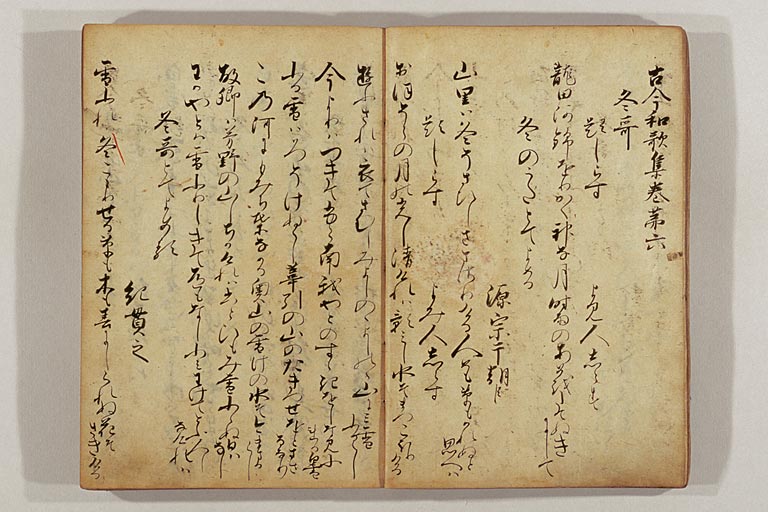 古今和歌集巻第六
冬哥
題しらす　よみ人しらす
龍田河錦をりかく神な月時雨のあめをたてぬきにして
冬のうたとてよめる
源宗于朝臣
山里は冬そさひしさまさりける人めも草もかれぬと思へは
題しらす　よみ人しらす
おほそらの月の光し清けれは影みし水そまつこほりける
ゆふされは衣てさむしみよしのゝよしのゝ山にみ雪ふるらし
今よりはつきてふら南我やとのすゝきをしなみふれる白雪
ふる雪はかつそけぬらし葦引の山のたきつせをとまさるなり
この河にもみちは流る奥山の雪けの水そ今まさるらし
故郷は芳野の山しちかけれはひとひもみ雪ふらぬ日はなし
わかやとは雪ふりしきてみちもなしふみわけてとふ人しなけれは
冬哥とてよめる
紀貫之
雪ふれは冬こもりせる草も木も春にしられぬ花そさきける